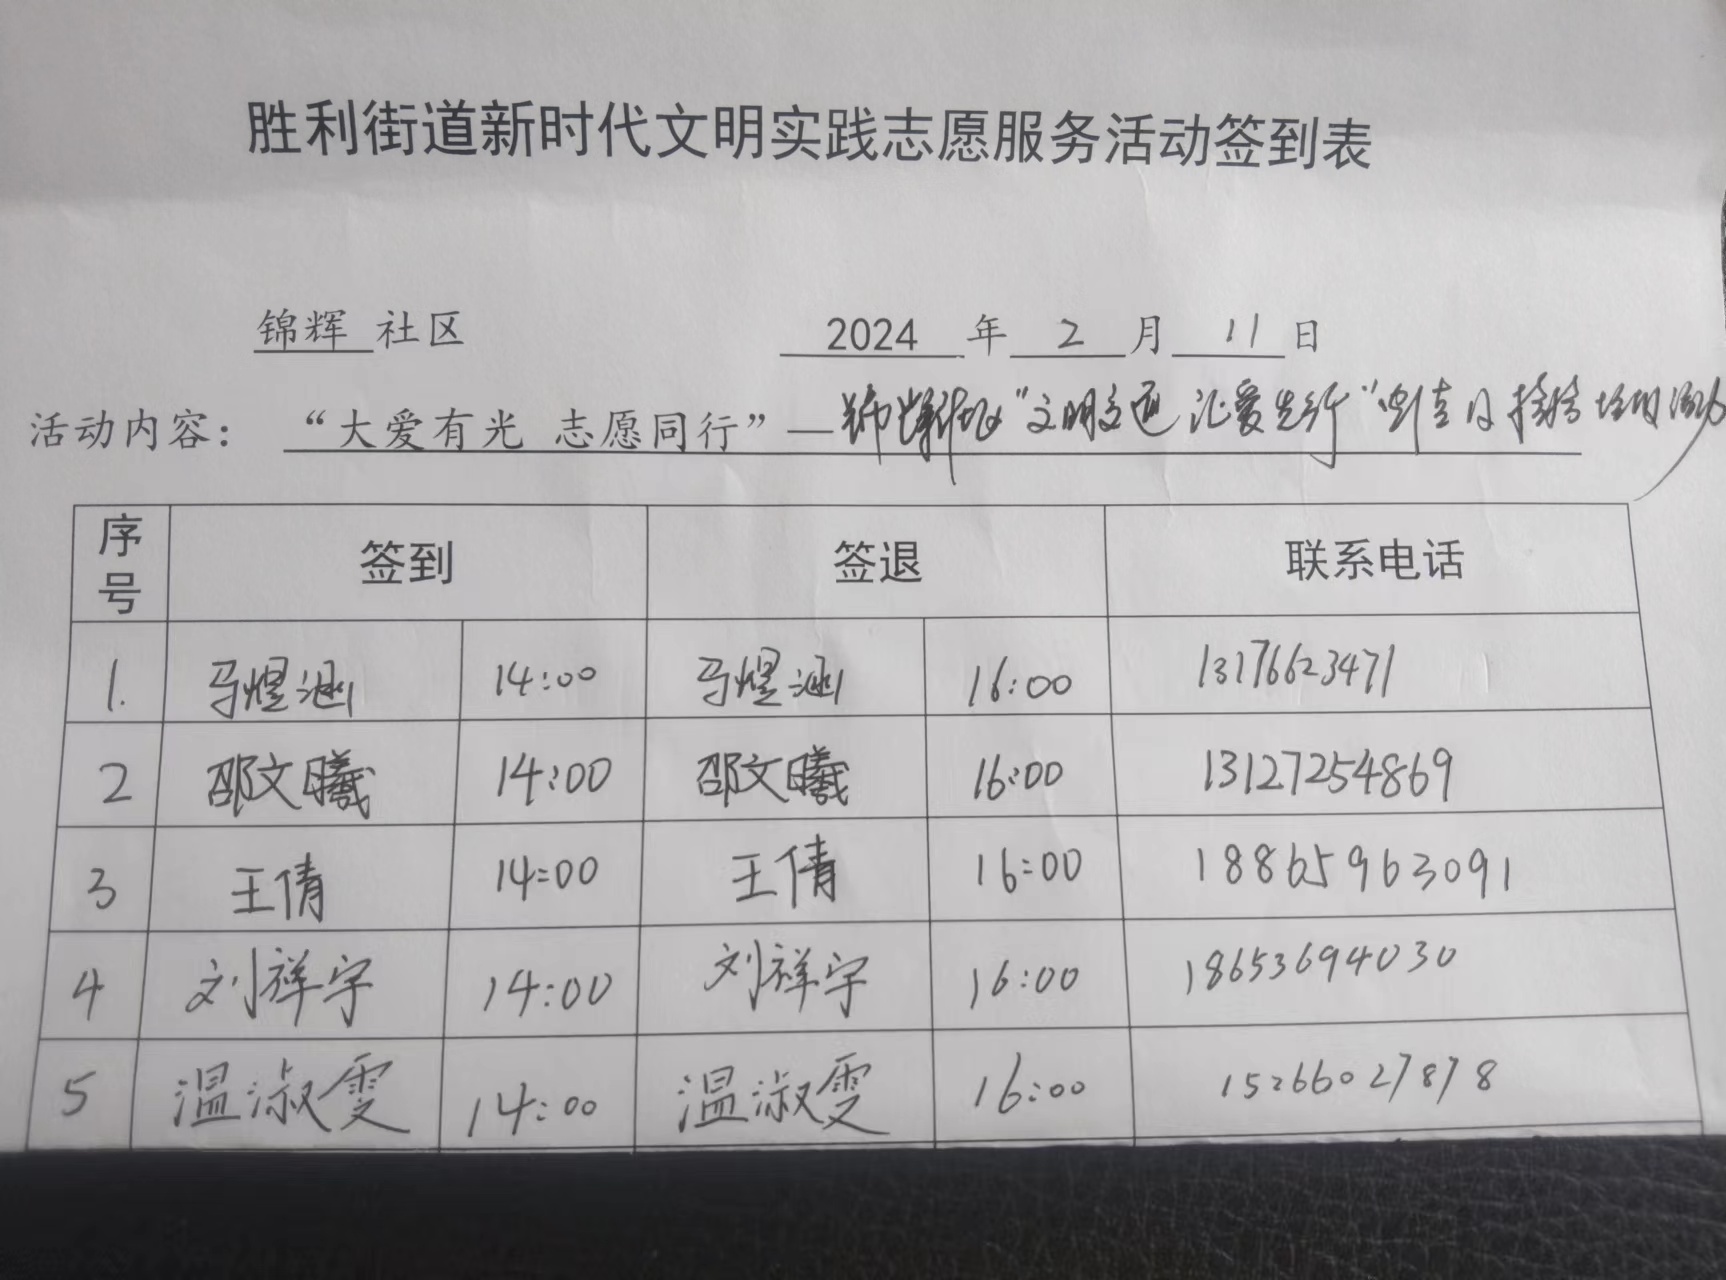 胜利街道新时代文明实践志愿服务活动签到表
锦辉 社区 2024 年 2 月 11 日
活动内容： “大爱有光 志愿同行” — “文明交通 汇爱先行”
序号 签到 签退 联系电话
1. 马煜涵 14:00 马煜涵 16:00 13176623471
2 邵文曦 14:00 邵文曦 16:00 13127254869
3 王倩 14:00 王倩 16:00 18865963091
4 刘祥宇 14:00 刘祥宇 16:00 18653694030
5 温淑雯 14:00 温淑雯 16:00 15266027878